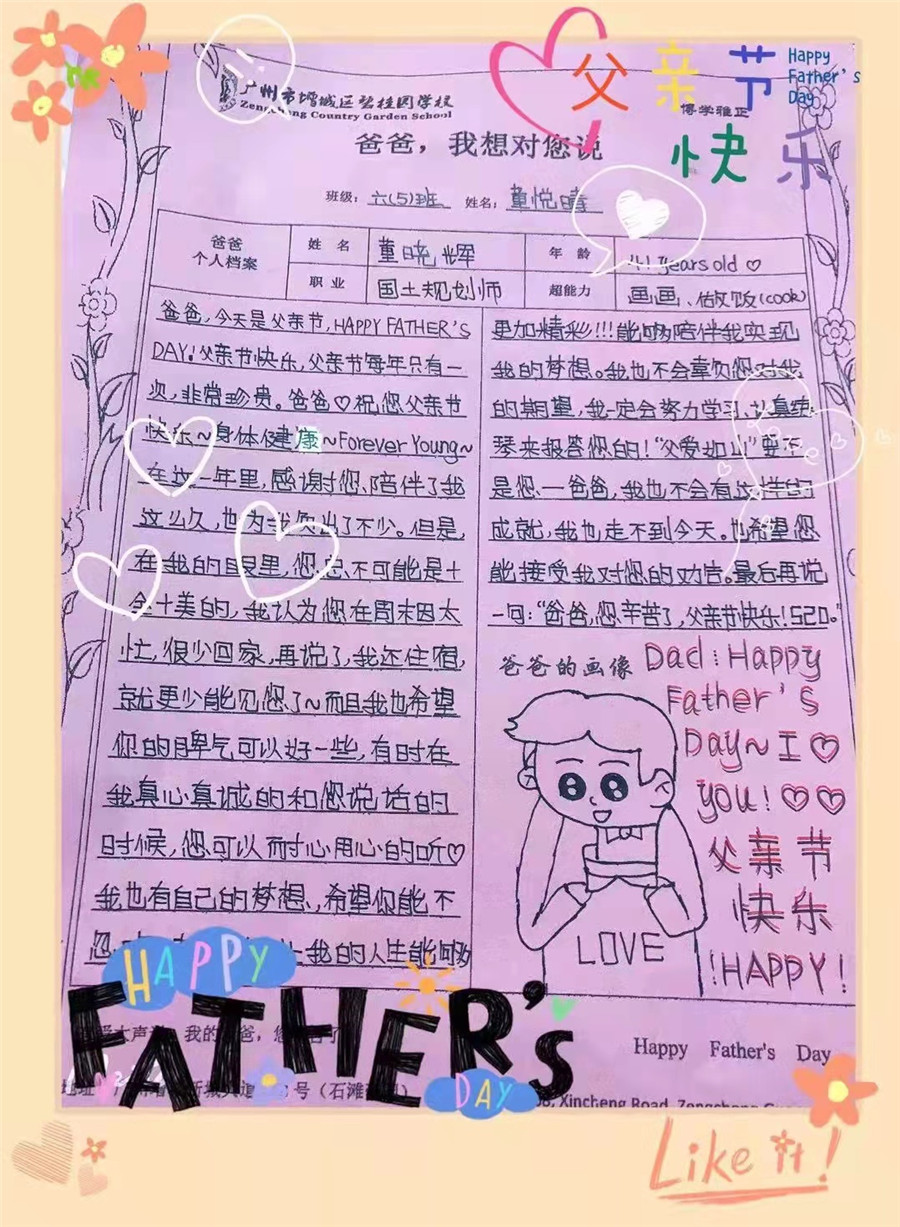 父亲节
Happy
Father's
Day
快乐
广州市增城区碧桂园学校
Zengcheng Country Garden School
博学雅正
爸爸，我想对您说
班级：六(5)班 姓名：董悦晴
爸爸
个人档案
姓 名 董晓辉 年 龄 41 years old ♡
职 业 国土规划师 超能力 画画、做饭(cook)
爸爸，今天是父亲节，HAPPY FATHER'S
DAY!父亲节快乐，父亲节每年只有一
次，非常珍贵。爸爸♡祝您父亲节
快乐~身体健康~Forever Young~
在这一年里，感谢您、陪伴了我
这么久，也为我付出了不少。但是，
在我的目里，您总不可能是十
全十美的，我认为您在周末因太
忙，很少回家，再说了，我还住宿，
就更少能见您了~而且我也希望
你的脾气可以好一些，有时在
我真心真诚的和您说话的
时候，您可以耐心用心的听♡
我也有自己的梦想、希望你能不
让我的人生能够
更加精彩!!!能够陪伴我实现
我的梦想。我也不会辜负您对我
的期望，我一定会努力学习、认真练
琴来报答您的!“父爱如山”要不
是您一爸爸，我也不会有这样的
成就，我也走不到今天。也希望您
能接受我对您的劝告。最后再说
一句：“爸爸，您辛苦了，父亲节快乐!520。”
爸爸的画像
Dad：Happy
Father's
Day~I♡
you!♡♡
父亲节
快乐
!HAPPY!
LOVE
HAPPY
FATHER's
DAY
Happy Father's Day
号（石滩
Xincheng Road, Zengcheng
Like it!